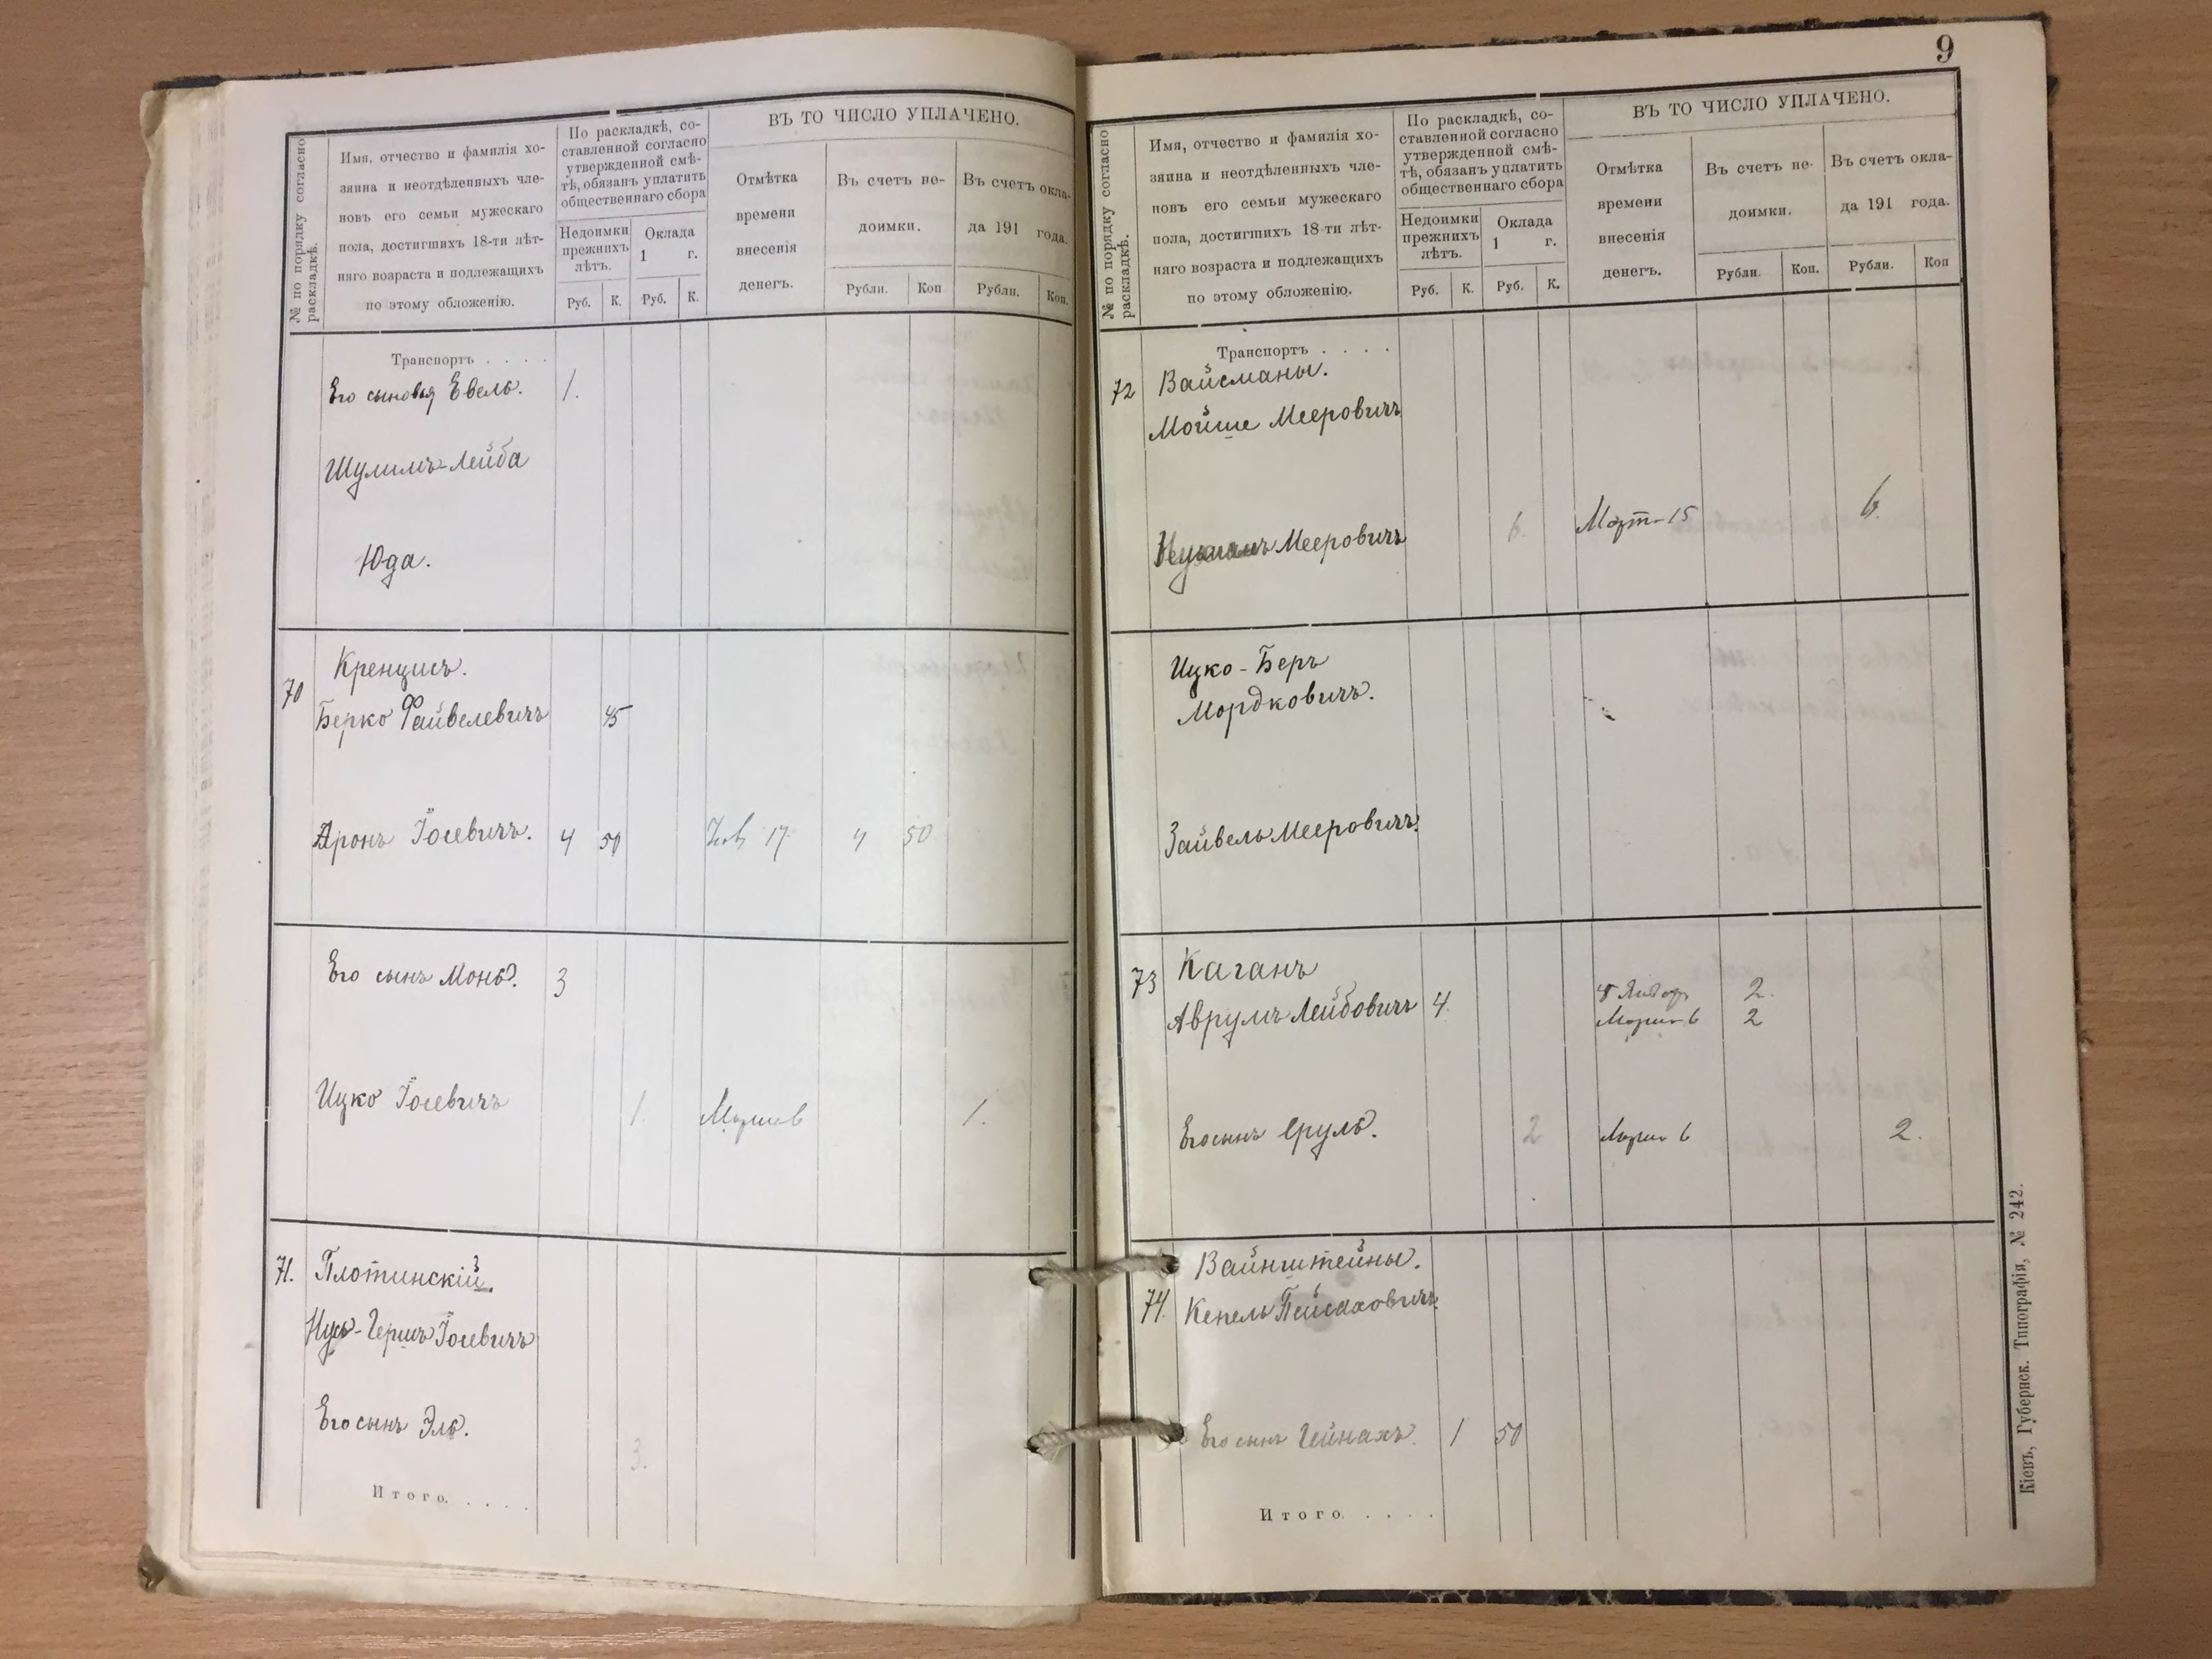 № по порядку согласно
раскладкѣ.
Имя, отчество и фамилія хо-
зяина и неотдѣленныхъ чле-
новъ его семьи мужескаго
пола, достигшихъ 18-ти лѣт-
няго возраста и подлежащихъ
по этому обложенію.
По раскладкѣ, со-
ставленной согласно
утвержденной смѣ-
тѣ, обязанъ уплатить
общественнаго сбора
Недоимки
прежнихъ
лѣтъ.
Оклада
1 г.
Руб. К. Руб. К.
ВЪ ТО ЧИСЛО УПЛАЧЕНО.
Отмѣтка
времени
внесенія
денегъ.
Въ счетъ не-
доимки.
Въ счетъ окла-
да 191 года.
Рубли. Коп Рубли. Коп.
Транспортъ . . . .
Его сыновья Евель. 1.
Шулимъ-Лейба
Юда.
70
Кренцисъ.
Берко Файвелевичъ 45
Аронъ Іосевичъ. 4 50 17 4 50
Его сынъ Монь. 3
Ицко Іосевичъ 1. 1.
71. Плотинскій.
Нусь-Гершъ Іосевичъ
Его сынъ Эль. 3.
Итого. . . . .
9
№ по порядку согласно
раскладкѣ.
Имя, отчество и фамилія хо-
зяина и неотдѣленныхъ чле-
новъ его семьи мужескаго
пола, достигшихъ 18-ти лѣт-
няго возраста и подлежащихъ
по этому обложенію.
По раскладкѣ, со-
ставленной согласно
утвержденной смѣ-
тѣ, обязанъ уплатить
общественнаго сбора
Недоимки
прежнихъ
лѣтъ.
Оклада
1 г.
Руб. К. Руб. К.
ВЪ ТО ЧИСЛО УПЛАЧЕНО.
Отмѣтка
времени
внесенія
денегъ.
Въ счетъ не-
доимки.
Въ счетъ окла-
да 191 года.
Рубли. Коп. Рубли. Коп
Транспортъ . . . .
72 Вайсманы.
Мойше Мееровичъ
Мееровичъ 6. Март 15 6.
Ицко-Беръ
Мордковичъ.
Зайвель Мееровичъ.
73 Каганъ
Аврумъ Лейбовичъ 4. Январ 2.
Марта 6 2
Его сынъ Сруль. 2 Марта 6 2.
Вайнштейны.
74. Кепель Пейсаховичъ
Его сынъ Гейнахъ. 1 50
Итого. . . . .
Кіевъ, Губернск. Типографія, № 242.